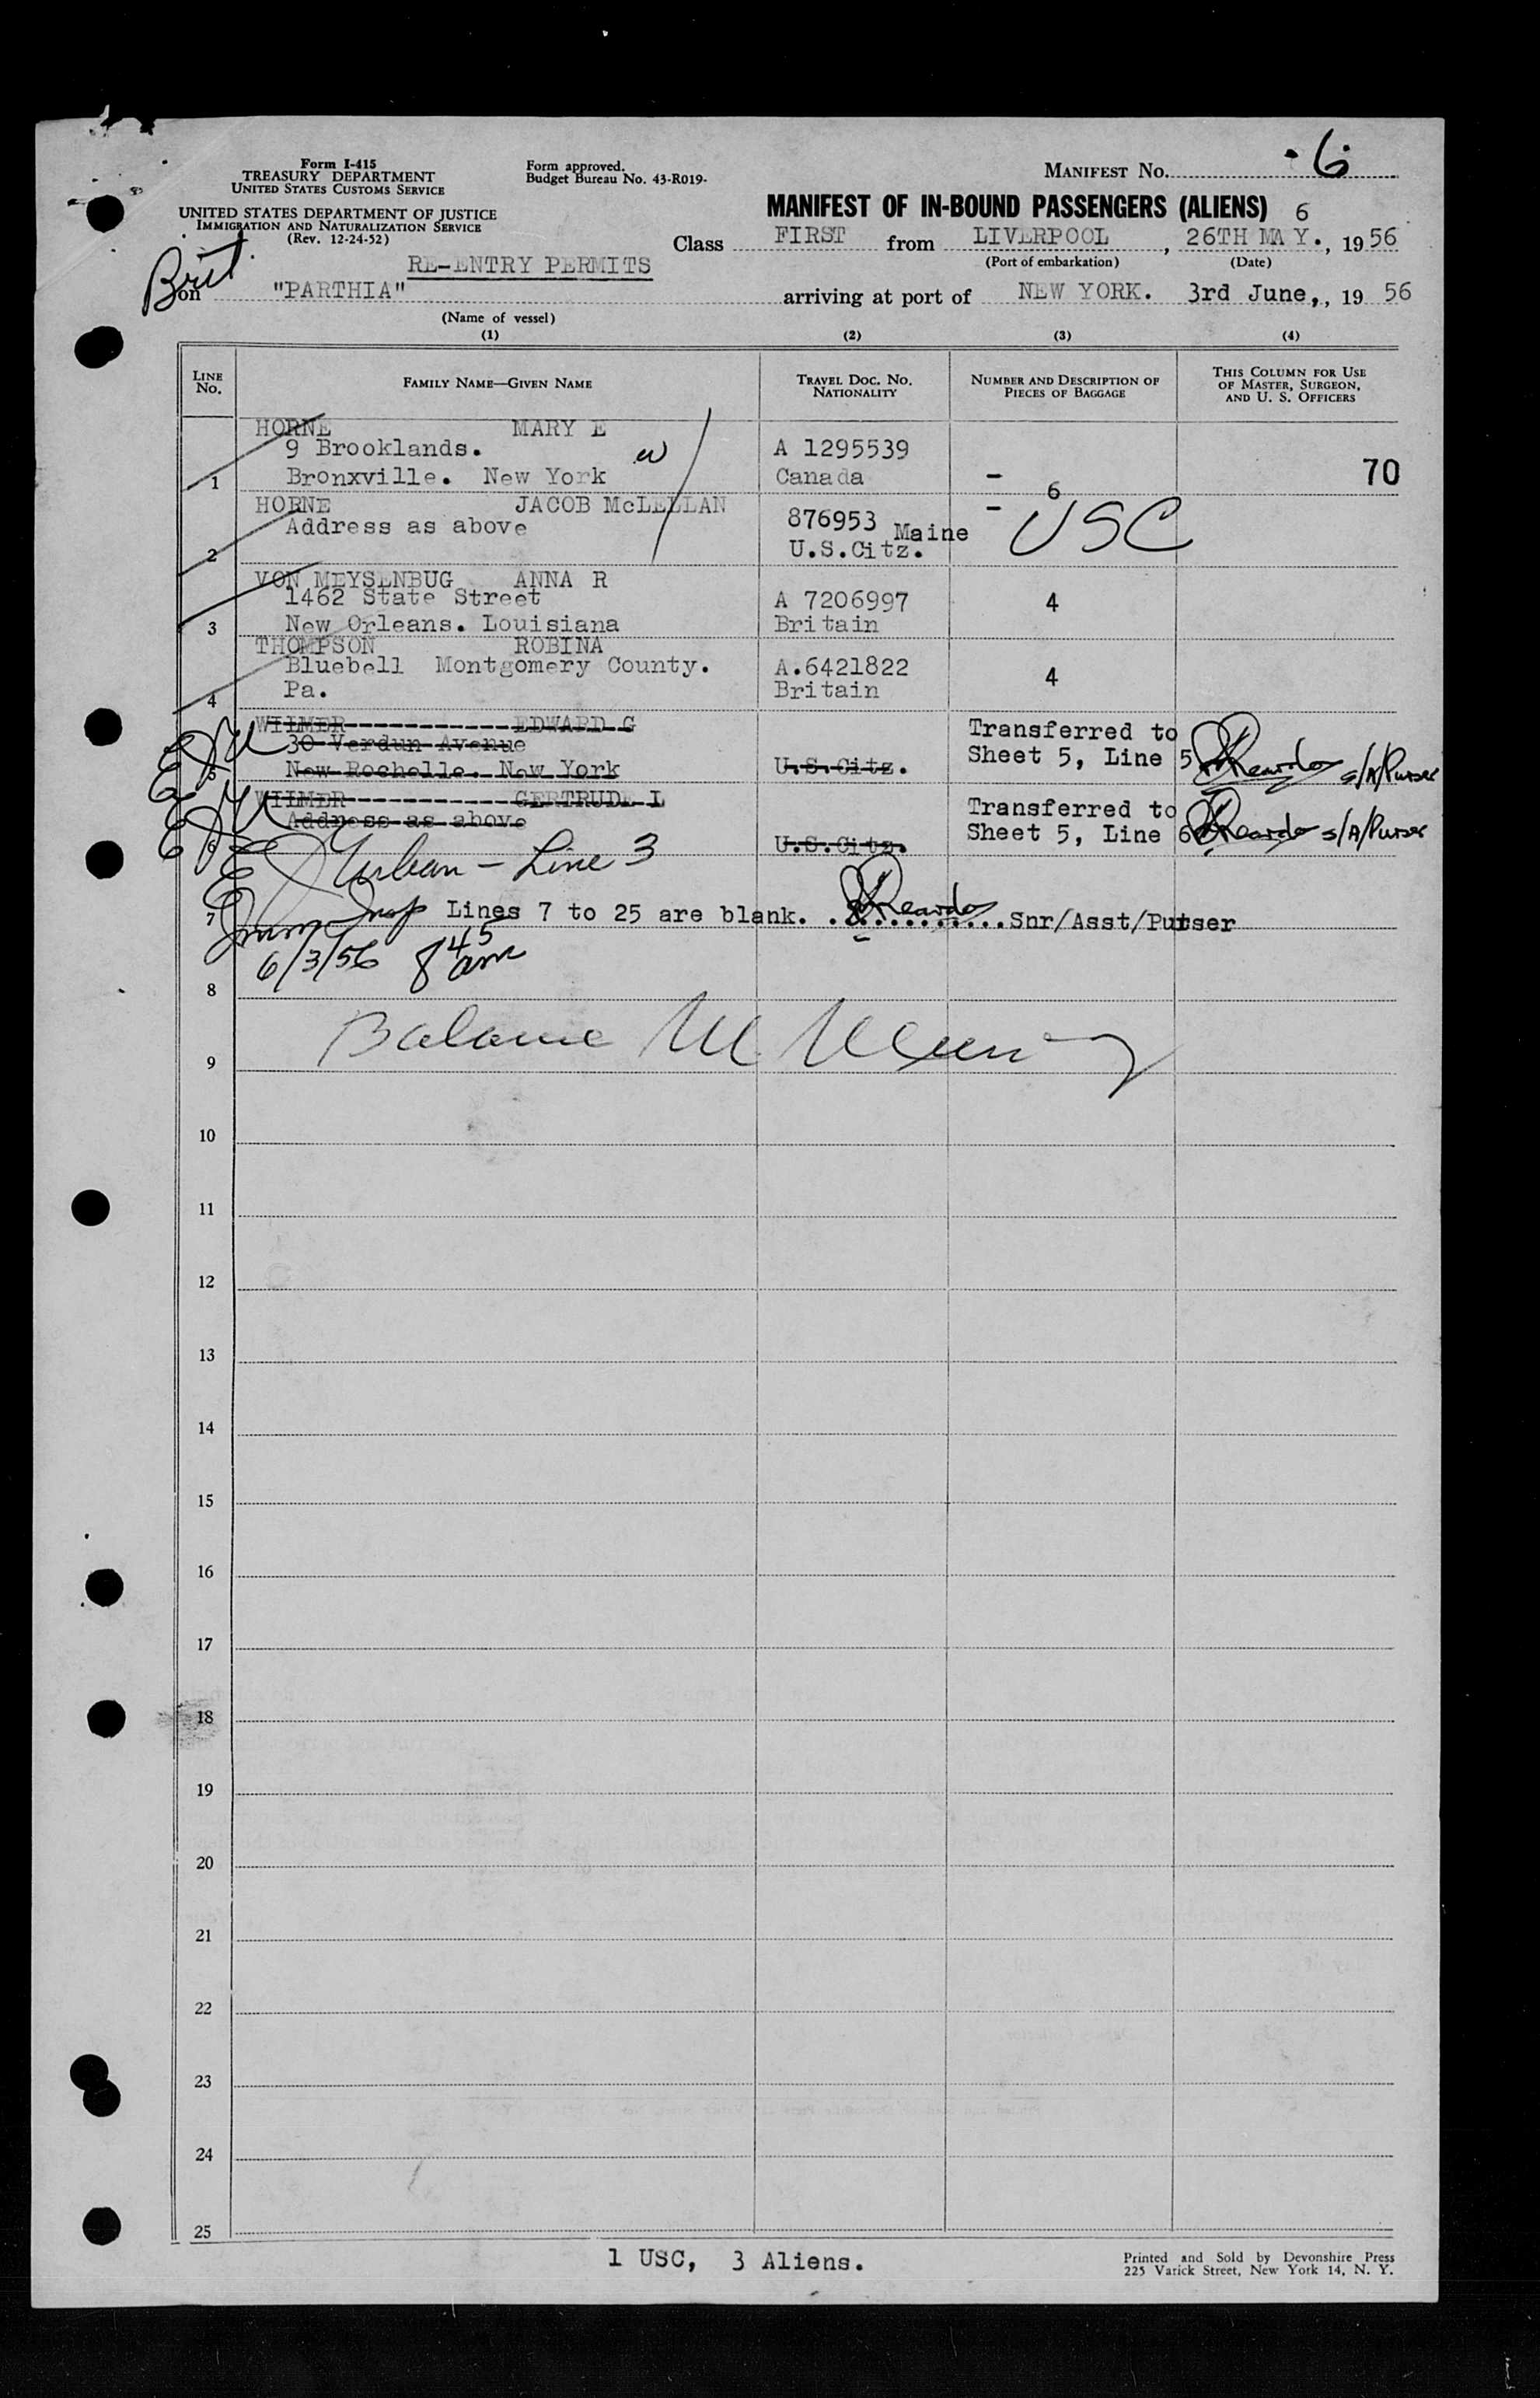 Form I-415
TREASURY DEPARTMENT
UNITED STATES CUSTOMS SERVICE
UNITED STATES DEPARTMENT OF JUSTICE
IMMIGRATION AND NATURALIZATION SERVICE
(Rev. 12-24-52)
Form approved.
Budget Bureau No. 43-R019-
MANIFEST No. 6
MANIFEST OF IN-BOUND PASSENGERS (ALIENS) 6
Class FIRST from LIVERPOOL, 26TH MAY., 1956
(Port of embarkation) (Date)
Brit
RE-ENTRY PERMITS
on "PARTHIA" arriving at port of NEW YORK. 3rd June,, 19 56
(Name of vessel)
(1) (2) (3) (4)
LINE No. FAMILY NAME—GIVEN NAME TRAVEL DOC. NO. NATIONALITY NUMBER AND DESCRIPTION OF PIECES OF BAGGAGE THIS COLUMN FOR USE OF MASTER, SURGEON, AND U. S. OFFICERS
HORNE MARY E
9 Brooklands. A 1295539
1 Bronxville. New York Canada - 70
HORNE JACOB McLELLAN 6
Address as above 876953 Maine - USC
2 U.S.Citz.
VON MEYSENBUG ANNA R
1462 State Street A 7206997 4
3 New Orleans. Louisiana Britain
THOMPSON ROBINA
Bluebell Montgomery County. A.6421822 4
4 Pa. Britain
WILMER EDWARD G Transferred to
30 Verdun Avenue Sheet 5, Line 5 S/A/Purser
5 New Rochelle. New York U.S.Citz.
WILMER GERTRUDE L Transferred to
Address as above Sheet 5, Line 6 S/A/Purser
6 U.S.Citz.
Urban - Line 3
7 Lines 7 to 25 are blank. Snr/Asst/Purser
6/3/56 8 45 am
8
9
10
11
12
13
14
15
16
17
18
19
20
21
22
23
24
25
1 USC, 3 Aliens.
Printed and Sold by Devonshire Press
225 Varick Street, New York 14, N. Y.